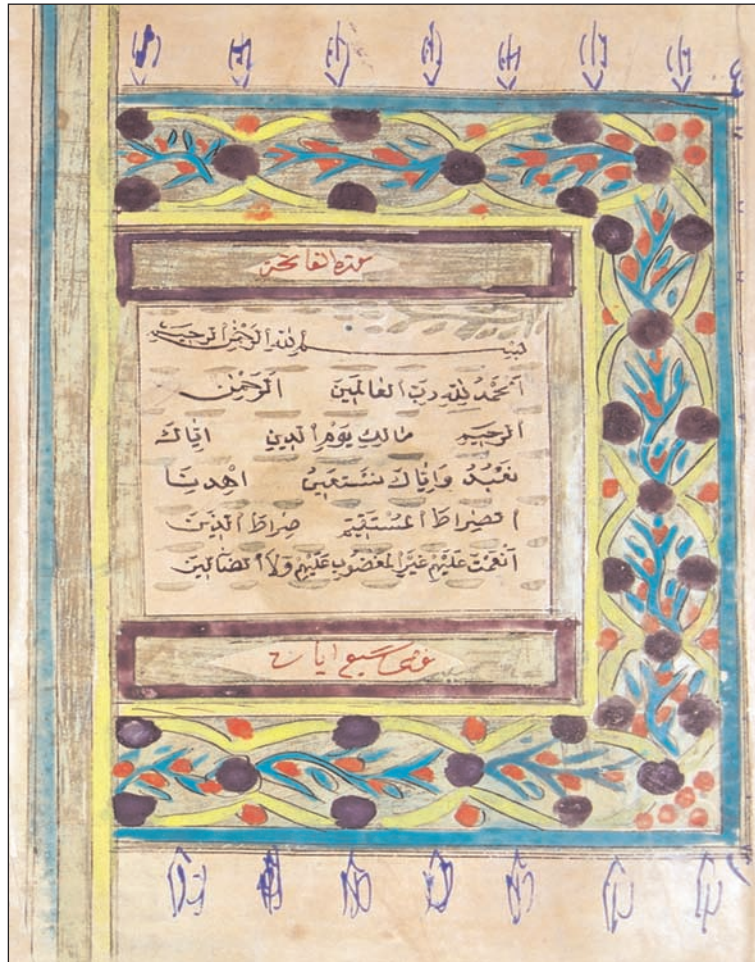 سورة الفاتحة
بسم الله الرحمن الرحيم
اَلْحَمْدُ لِلّٰهِ رَبِّ الْعَالَمِينَ الرَّحْمٰنِ
الرَّحِيمِ مَالِكِ يَوْمِ الدِّينِ اِيَّاكَ
نَعْبُدُ وَاِيَّاكَ نَسْتَعِينُ اِهْدِنَا
الصِّرَاطَ الْمُسْتَقِيمَ صِرَاطَ الَّذِينَ
اَنْعَمْتَ عَلَيْهِمْ غَيْرِ الْمَغْضُوبِ عَلَيْهِمْ وَلَا الضَّالِّينَ
سبع ايات